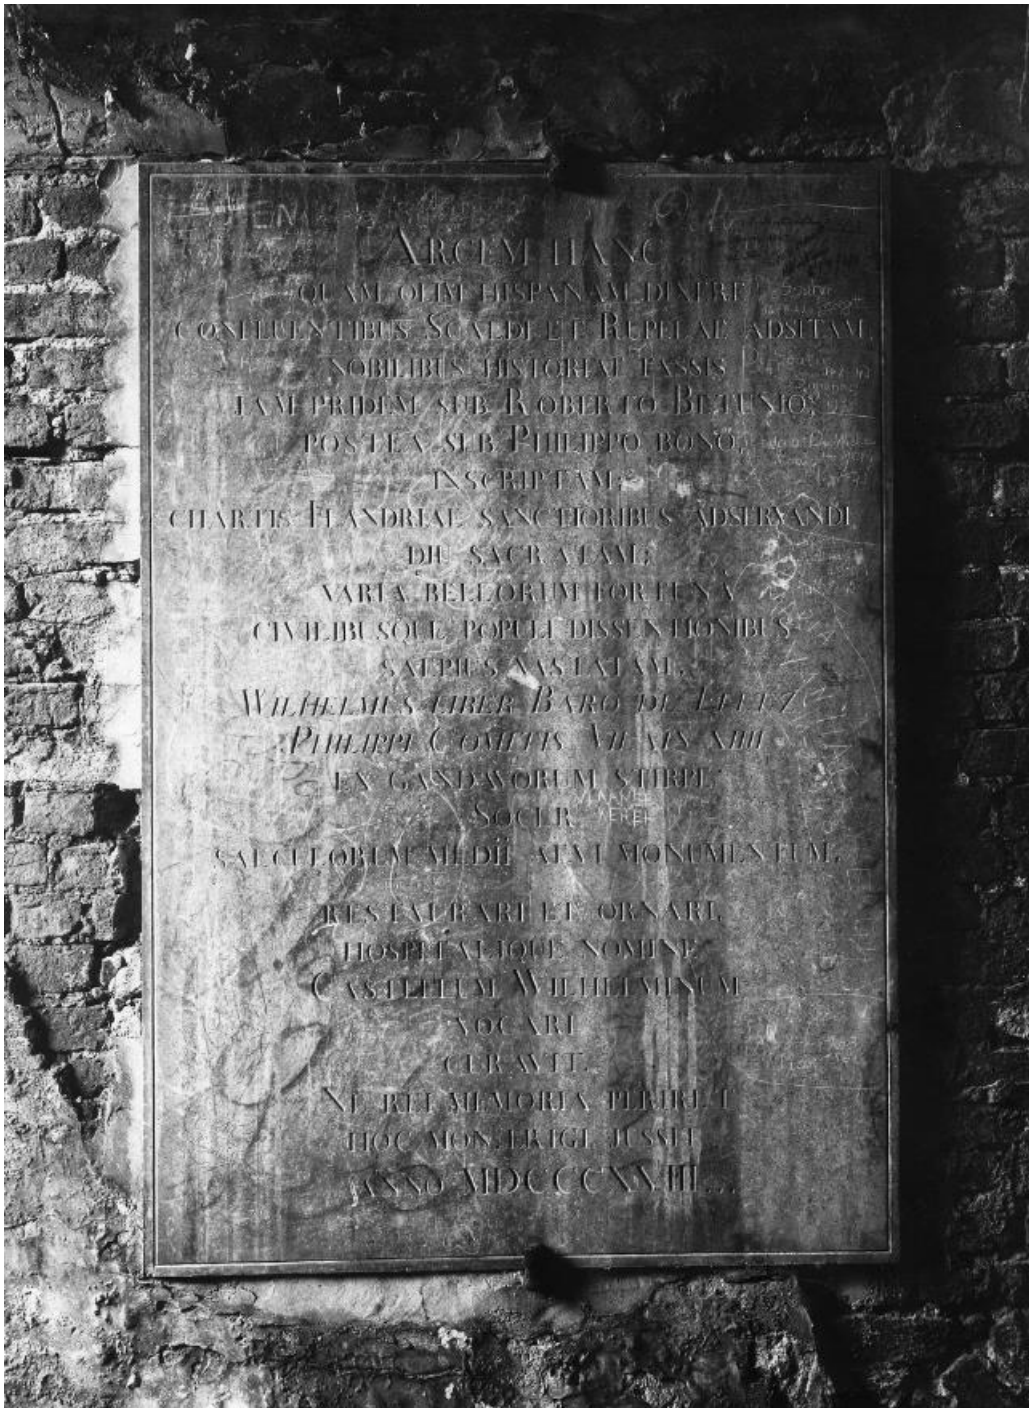 EN
ARCEM HANC
QUAM OLIM HISPANAM DIXERE
CONFLUENTIBUS SCALDI ET RUPELAE ADSITAM,
NOBILIBUS HISTORIAE FASSIS
IAM PRIDEM SUB ROBERTO BETUNIO;
POSTEA SUB PHILIPPO BONO,
INSCRIPTAM;
CHARTIS FLANDRIAE SANCTIORIBUS ADSERVANDI
DIU SACRATAM;
VARIA BELLORUM FORTUNA
CIVILIBUSQUE POPULI DISSENTIONIBUS
SAEPIUS VASTATAM,
WILHELMUS LIBER BARO DE
PHILIPPI COMITIS VILAIN XIIII
EX GANDAVORUM STIRPE
SOCER
SAECULORUM MEDII AEVI MONUMENTUM,
RESTAURARI ET ORNARI,
HOSPITALIQUE NOMINE
CASTELLUM WILHELMINUM
VOCARI
CURAVIT.
NE REI MEMORIA PERIRET
HOC MON. ERIGI JUSSIT
ANNO MDCCCXXIII...